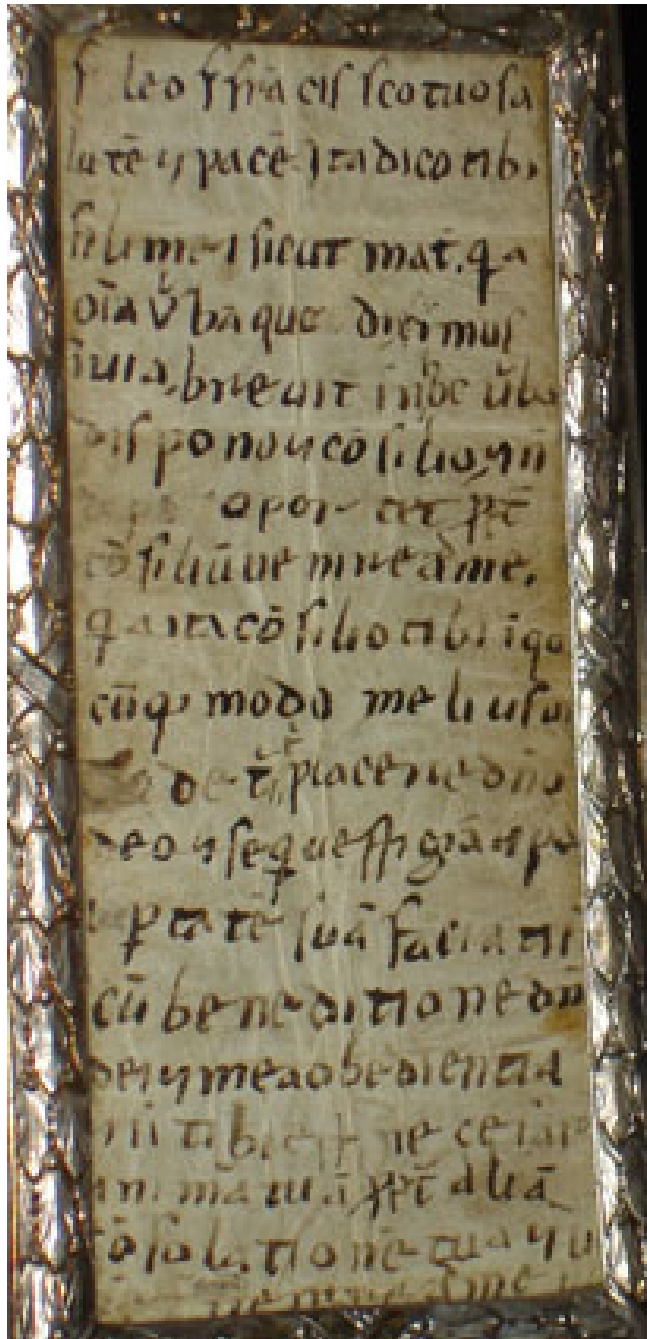 f leo f frācissco tuo sa
lutē ⁊ pacē Ita dico tibi
fili mei sicut mat̄. qa
oīa v̄ba que diximus
ī uia, breuit̄ in hoc u̅ba
dispono ⁊ cōsilio, ⁊ n̄
opor tet ꝓpt̄
cōsiliū ue nire ad me.
qa ita cōsilio tibi ī qo
cūqꝫ modo me lius ui
de t̄ t̄, placere dn̄o
deo ⁊ seq ueſtigiā ⁊ pa
uꝑ ta tē suā faciatis
cū be ne ditio ne dn̄i
dei ⁊ mea obedientia
tibi ne ce sār
ani mā tuā ꝓpt̄ aliā
cōso la tio nē tua ⁊ u
ue nire ad me